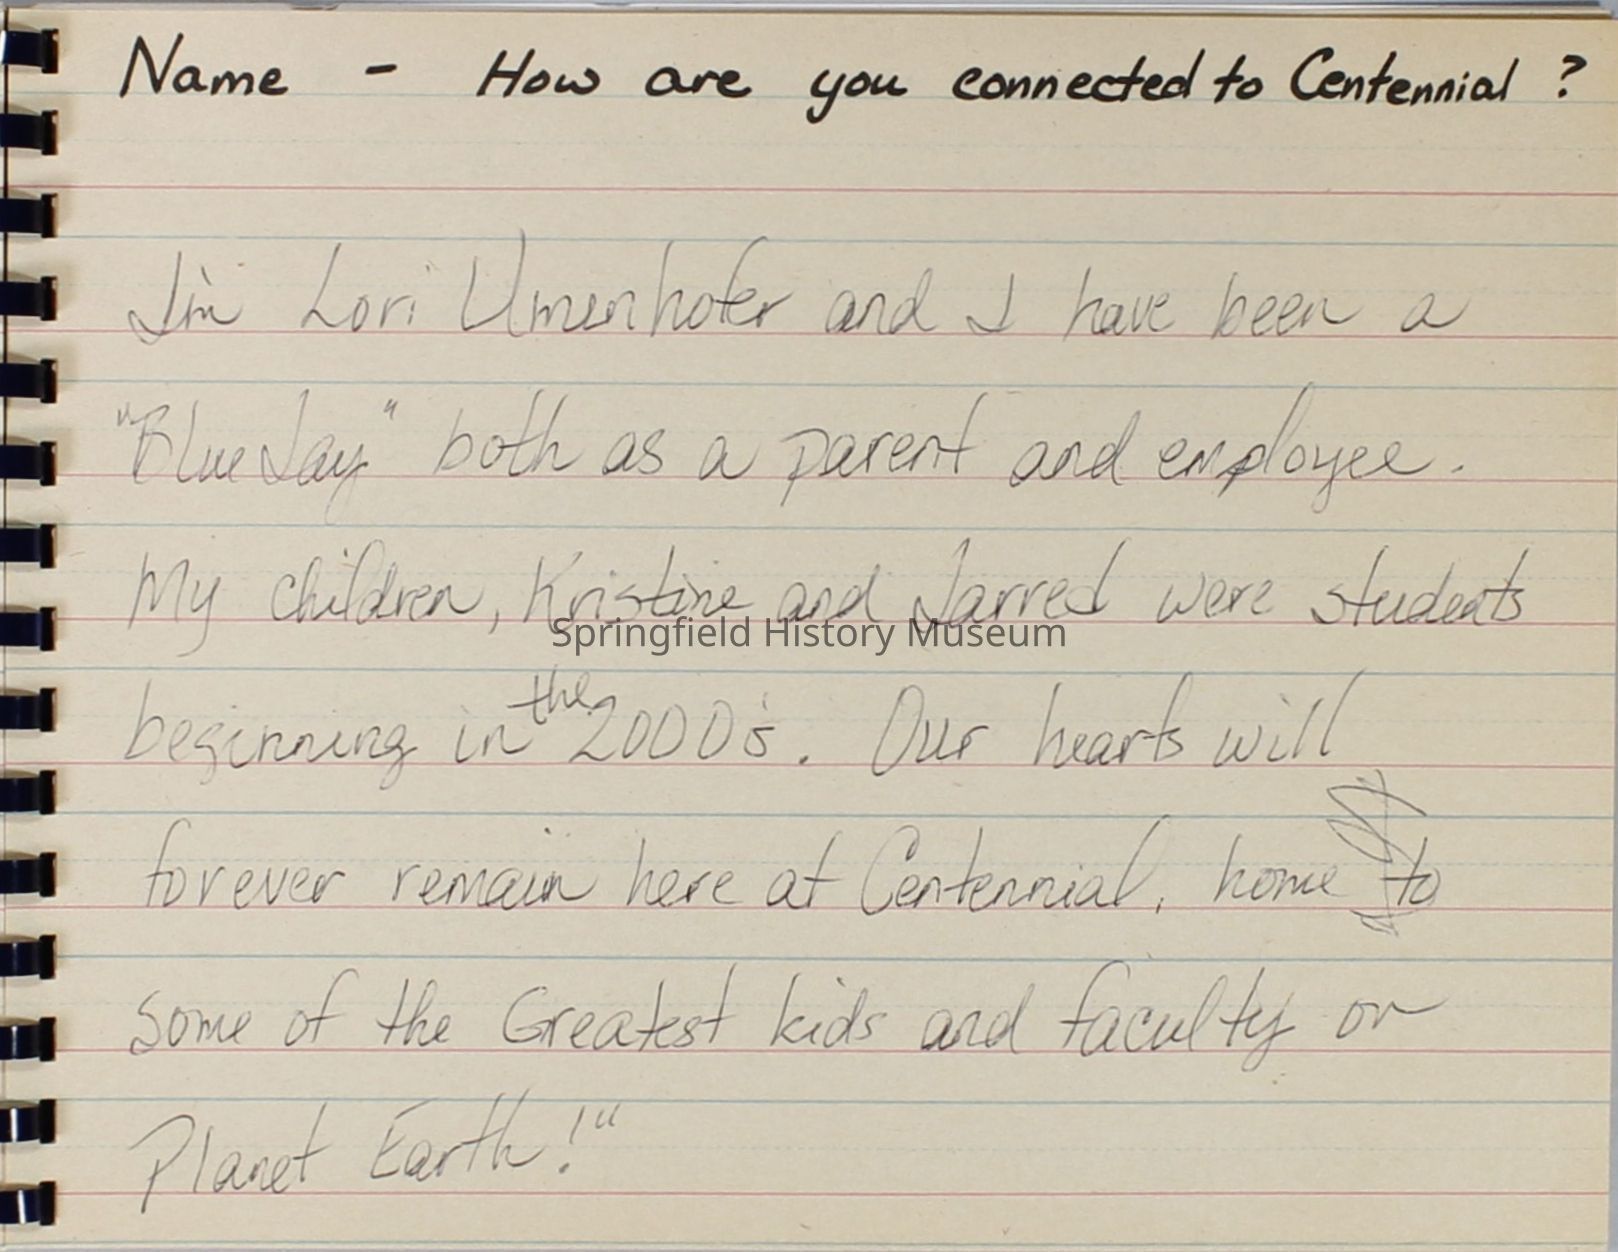 Name - How are you connected to Centennial ?
I'm Lori Umenhofer and I have been a
"Blue Jay" both as a parent and employee.
My children, Kristine and Jarred were students
Springfield History Museum
beginning in the 2000's. Our hearts will
forever remain here at Centennial, home to
some of the Greatest kids and faculty on
Planet Earth!"